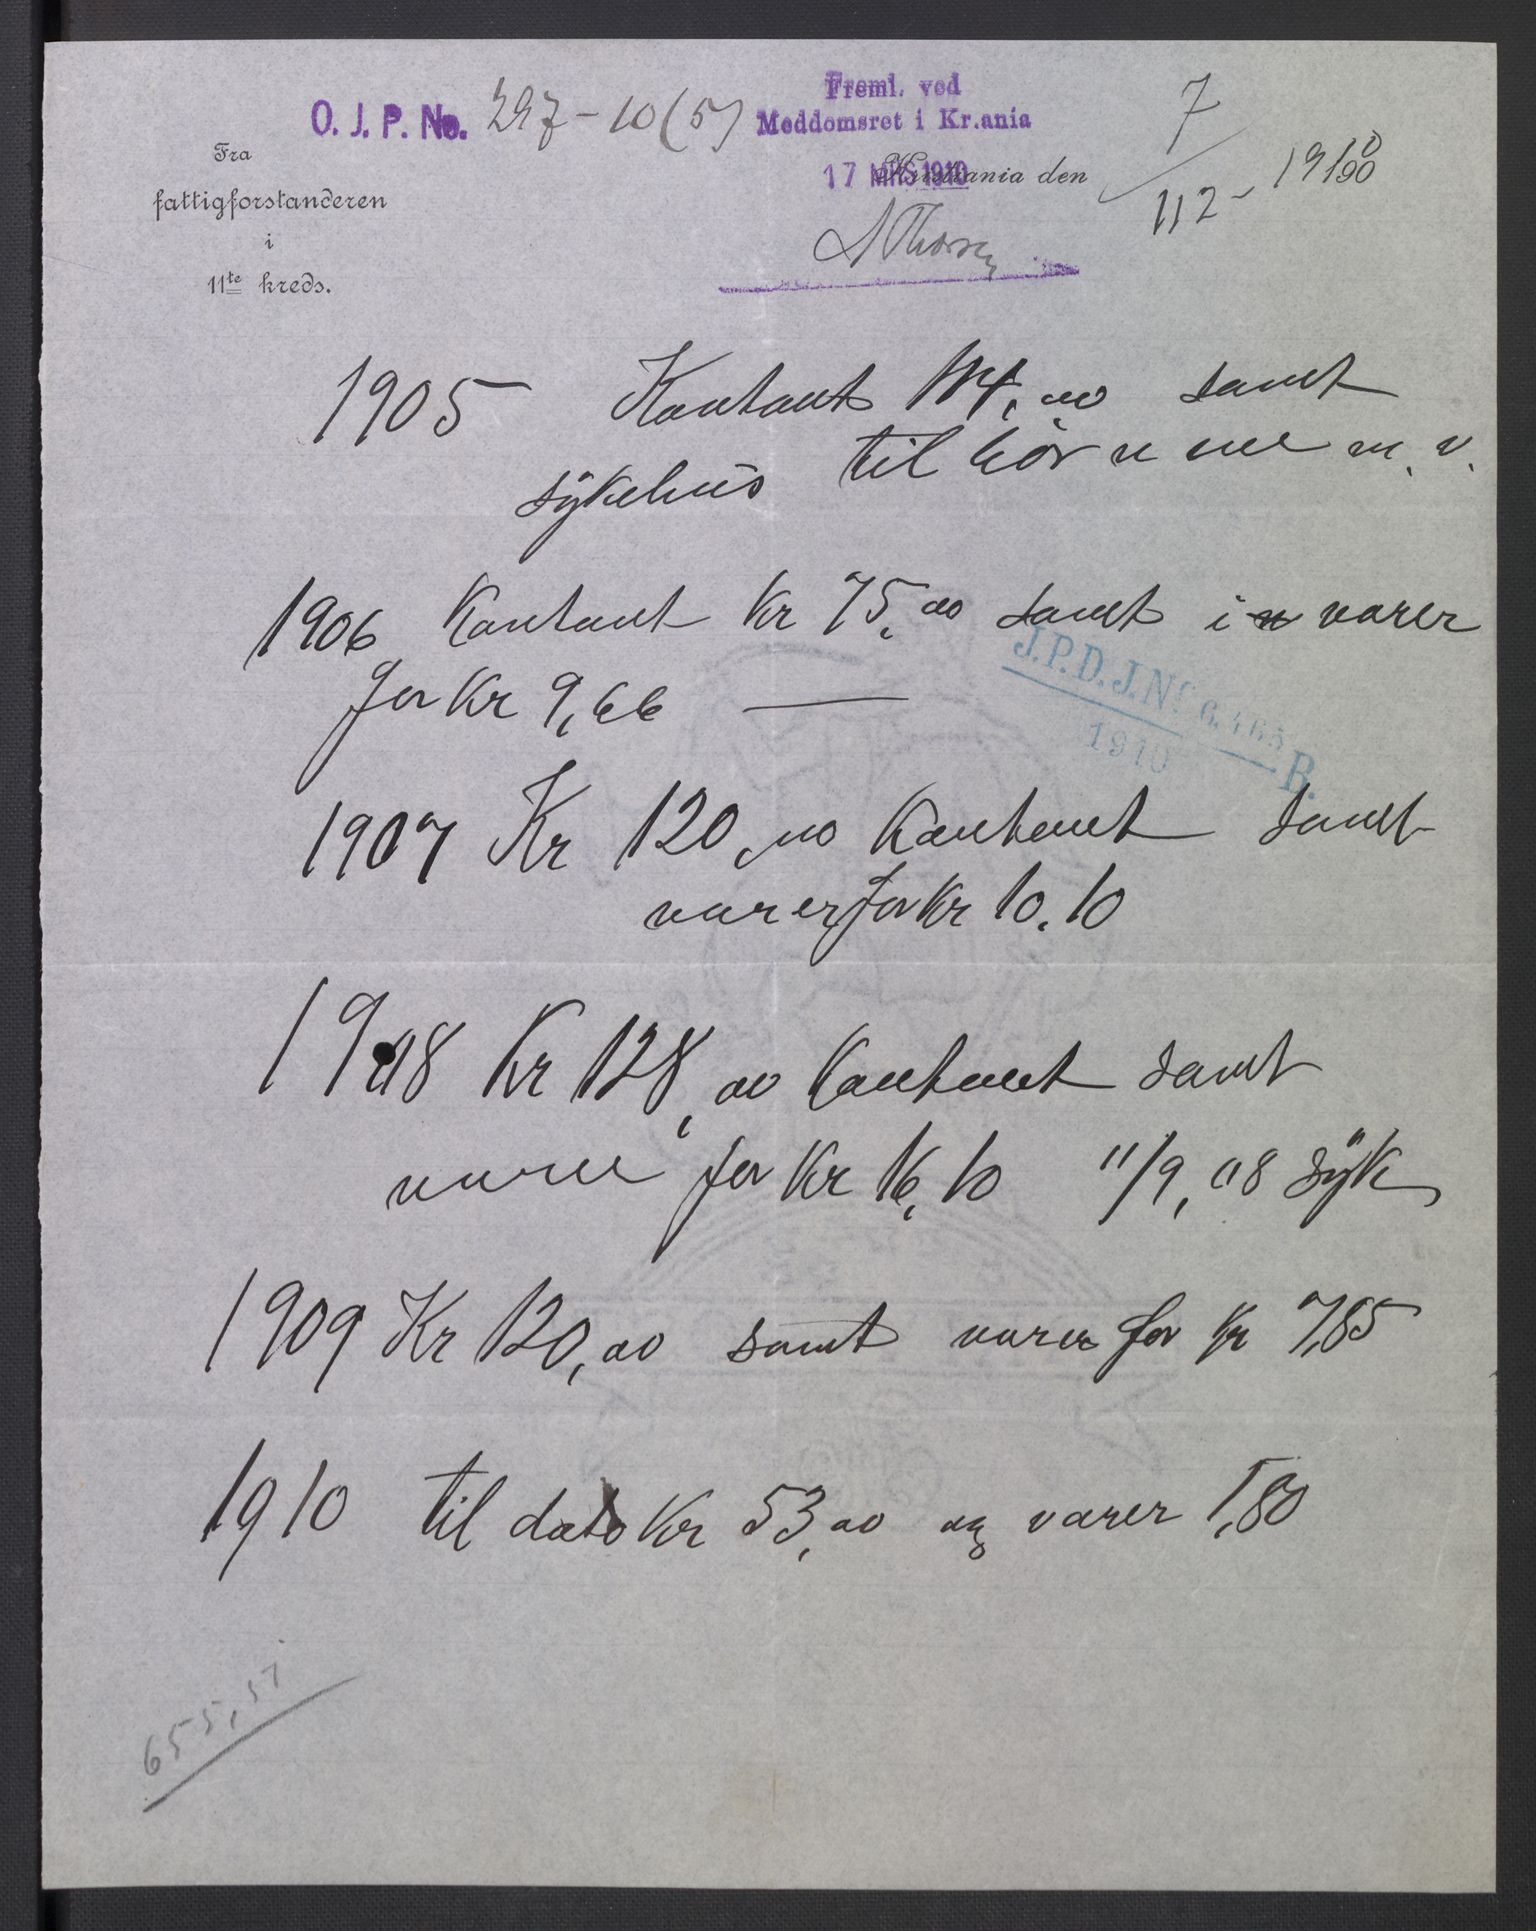 O. J. P. No. 297-10(5)
Freml. ved
Meddomsret i Kr.ania
17 MRS 1910
Fra
fattigforstanderen
i
11te kreds.
Kristiania den 7/112- 1910
AThorsen
1905 Kontant 114,00 samt
sÿkehus til m. v.
1906 Kontant Kr 75,00 samt i varer
for Kr 9,66
J.P.D.J.No 6.465 B.
1910
1907 Kr 120,00 Kontant samt
varer for Kr 10.10
1908 Kr 128,00 Kontant samt
varer for Kr 16,10 11/9, 08 sÿk
1909 Kr 120,00 samt varer for Kr 7,85
1910 til dato Kr 53,00 og varer 1,80
655,51